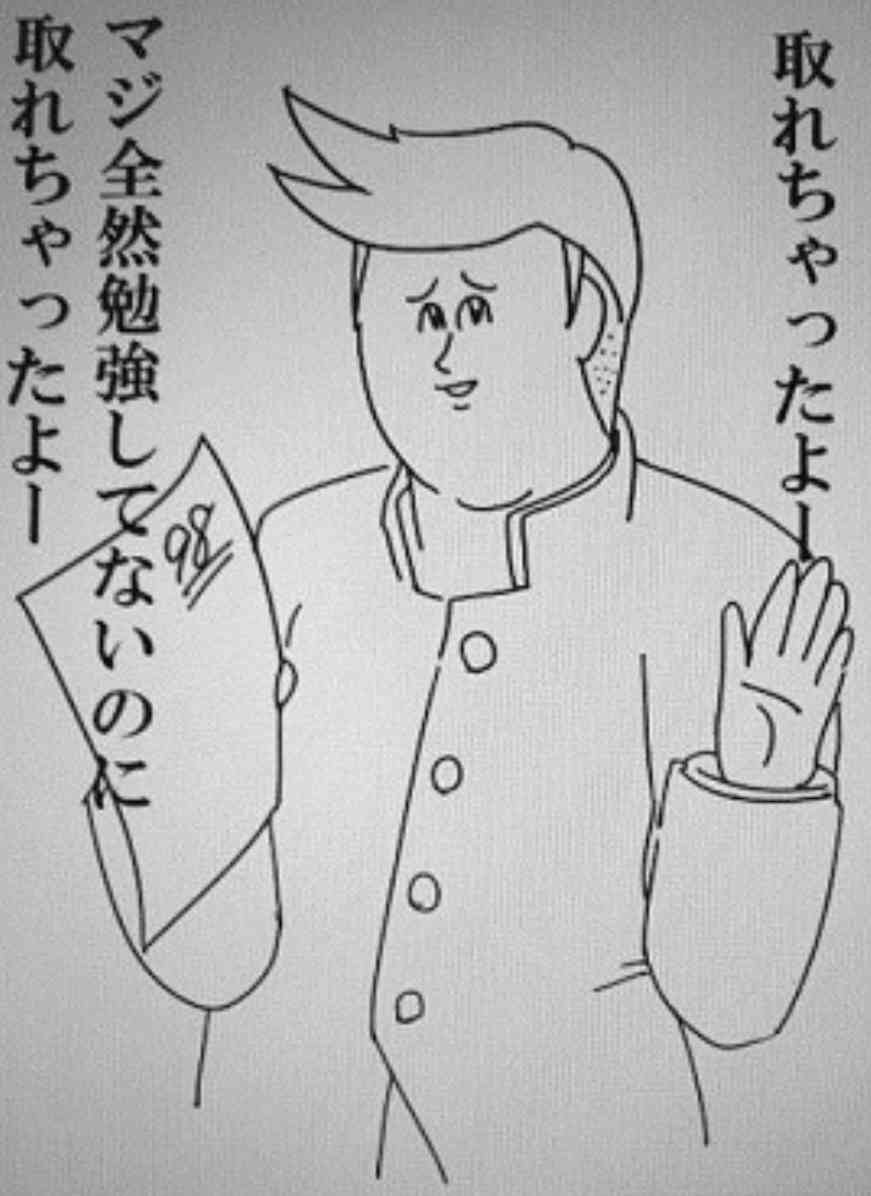 取れちゃったよー
マジ全然勉強してないのに
取れちゃったよー
98